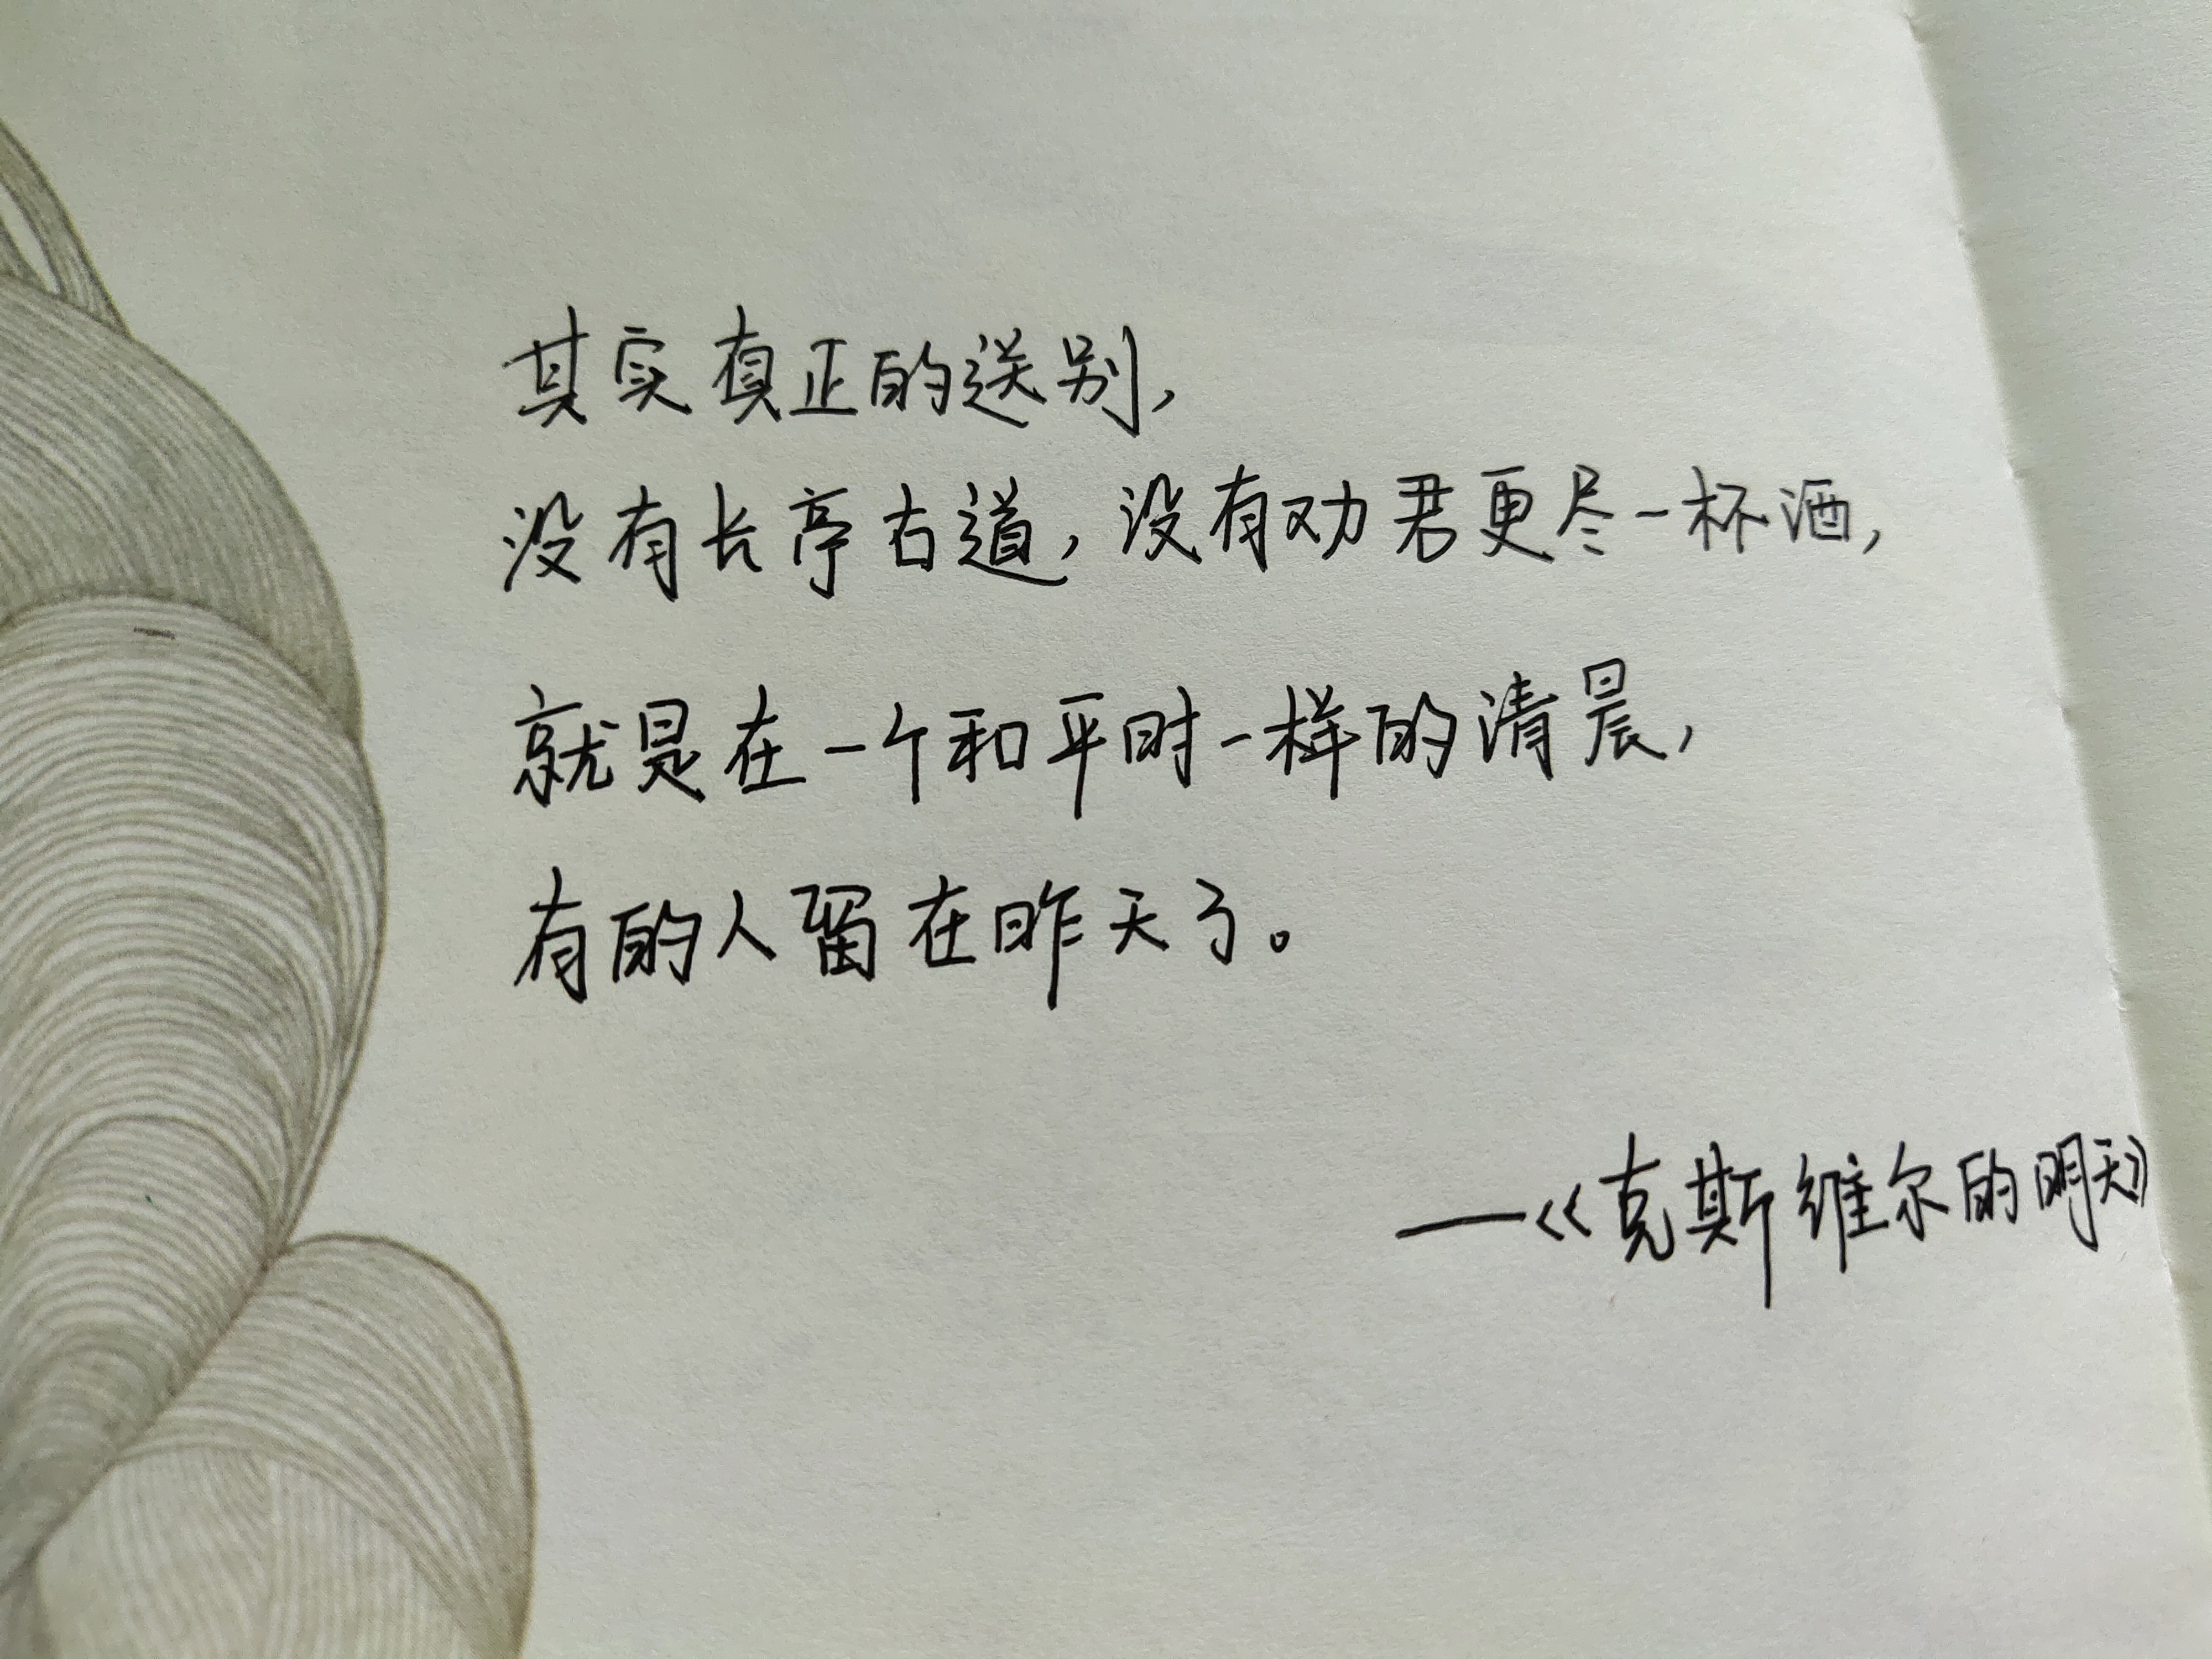 其实真正的送别，
没有长亭古道，没有劝君更尽一杯酒，
就是在一个和平时一样的清晨，
有的人留在昨天了。
—《克斯维尔的明天》